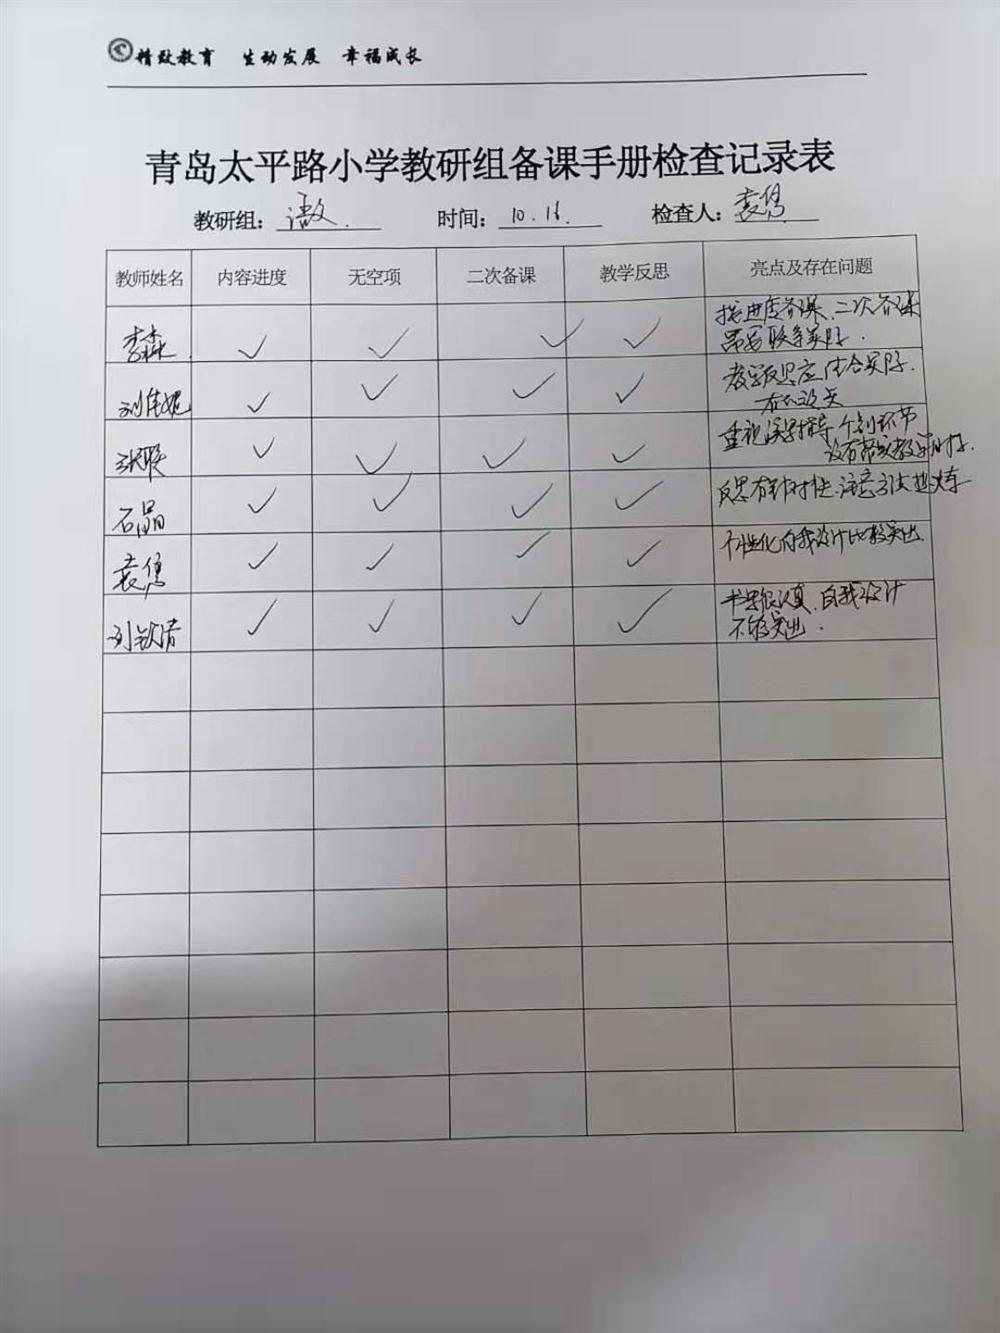 精致教育 生动发展 幸福成长
青岛太平路小学教研组备课手册检查记录表
教研组: 语文. 时间: 10.16. 检查人: 袁隽
教师姓名 内容进度 无空项 二次备课 教学反思 亮点及存在问题
李森 ✓ ✓ ✓ ✓ 按进度备课、二次备课
需要联系实际.
刘佳妮 ✓ ✓ ✓ ✓ 教学反思应结合实际.
✓ ✓ ✓ ✓ 重视学指导 个别环节
没有
石晶 ✓ ✓ ✓ ✓ 反思有针对性、注意方法提炼
袁隽 ✓ ✓ ✓ ✓ 个性化自我设计比较突出.
刘 清 ✓ ✓ ✓ ✓ 书写很认真、自我设计
不够突出.